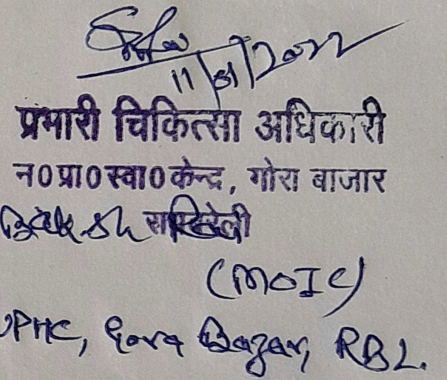 11/01/2022
प्रभारी चिकित्सा अधिकारी
न0प्रा0स्वा0केन्द्र, गोरा बाजार
(MOIC)
UPHC, Gora Bazar, RBL.